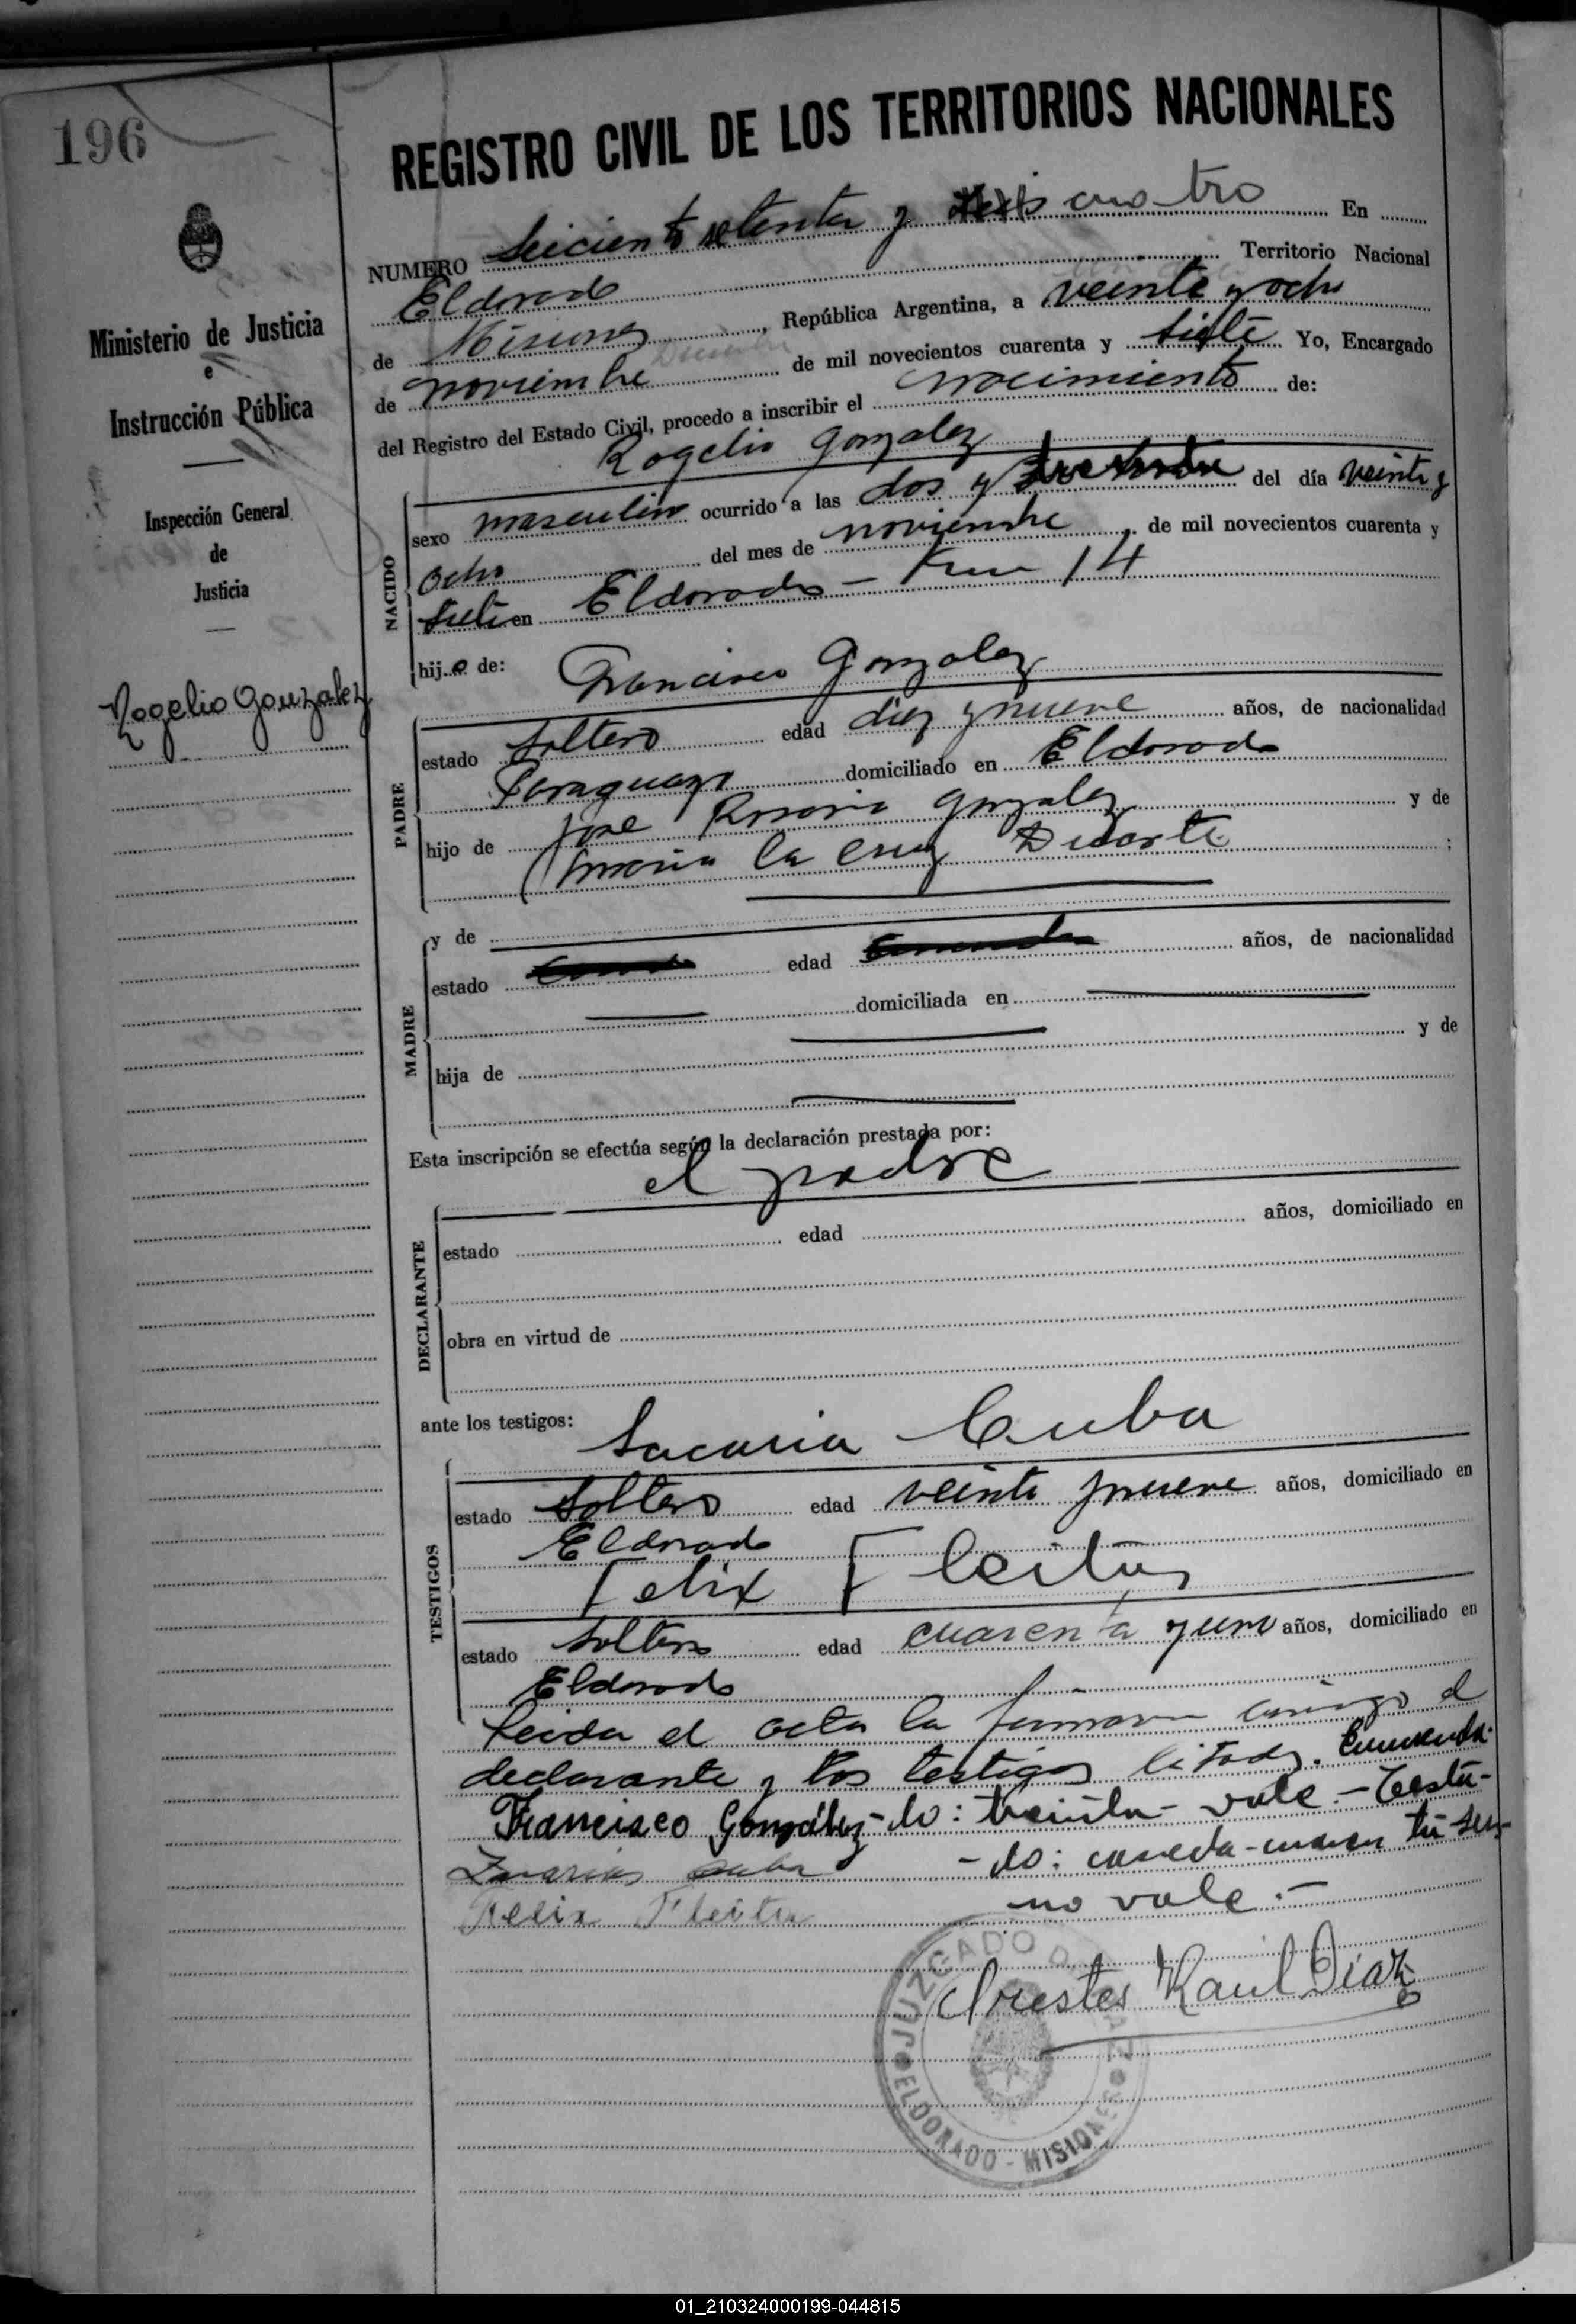 196
REGISTRO CIVIL DE LOS TERRITORIOS NACIONALES
Ministerio de Justicia
e
Instrucción Pública
Inspección General
de
Justicia
Rogelio Gonzalez
NUMERO Seiciento setenta y cuatro En
Eldorado Territorio Nacional
de Misiones, República Argentina, a veinte y ocho
de noviembre de mil novecientos cuarenta y siete Yo, Encargado
del Registro del Estado Civil, procedo a inscribir el nacimiento de:
Rogelio Gonzalez
NACIDO
sexo masculino ocurrido a las dos y del día veinte y
ocho del mes de noviembre, de mil novecientos cuarenta y
siete en Eldorado - Km 14
hijo de: Francisco Gonzalez
PADRE
estado soltero edad diez y nueve años, de nacionalidad
Paraguayo domiciliado en Eldorado
hijo de Jose Rosario Gonzalez y de
Maria la Cruz Duarte ;
MADRE
y de
estado edad años, de nacionalidad
domiciliada en
hija de y de
Esta inscripción se efectúa según la declaración prestada por:
el padre
DECLARANTE
estado edad años, domiciliado en
obra en virtud de
ante los testigos: Sacaria Cuba
TESTIGOS
estado soltero edad veinte y nueve años, domiciliado en
Eldorado
Felix Fleitas
estado soltero edad cuarenta y uno años, domiciliado en
Eldorado
Leida el acta la firmaron conmigo el
declarante y los testigos citados. Enmenda-
Francisco González -do: treinta - vale.- Testa-
Zacarias Cuba -do:
Felix Fleitas no vale.-
Orestes Raul Diaz
JUZGADO D PAZ
ELDORADO - MISIONES
01_210324000199-044815